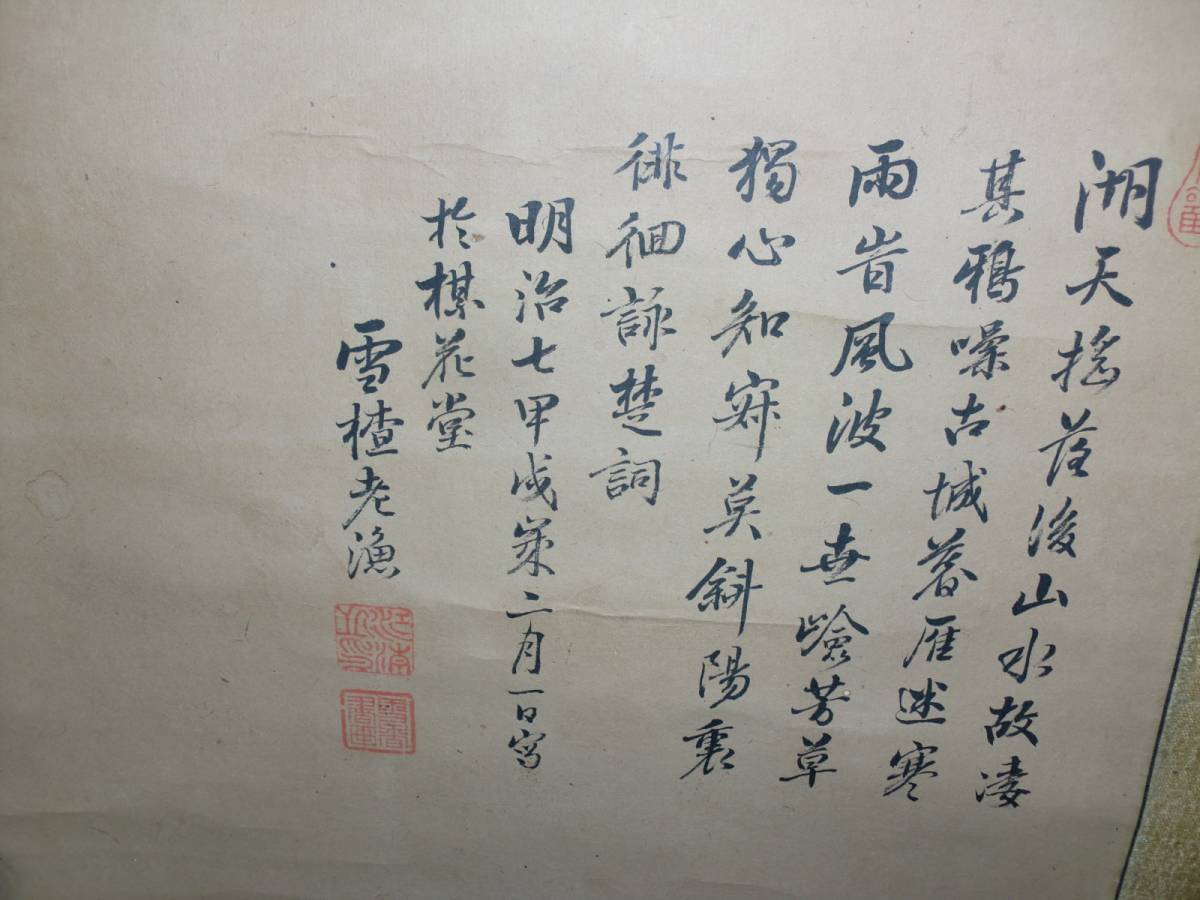 湖天搖落後山水故淒
其鴉噪古城暮雁迷寒
雨昔風波一世險芳草
獨心知寂莫斜陽裏
徘徊詠楚詞
明治七甲戌歲二月一日寫
於棋花堂
雪樝老漁